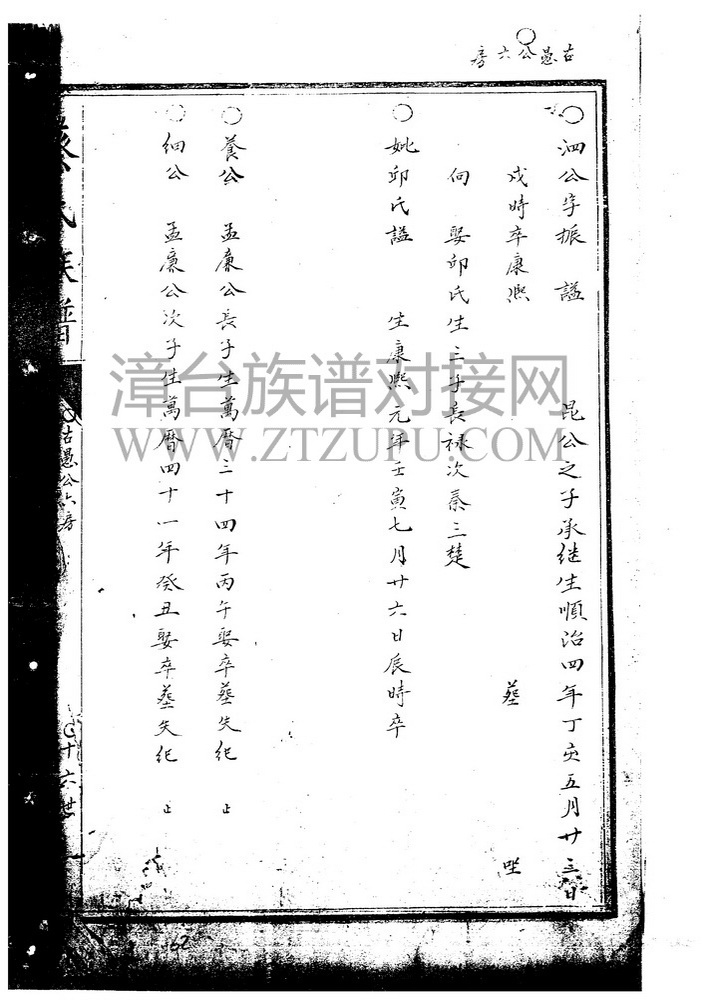 古愚公六房
泗公字振 謚 昆公之子承継生順治四年丁亥五月廿三日
戍時卒康熙 葬 坐
向 娶邱氏生三子長禄次秦三楚
妣邱氏謚 生康熙元年壬寅七月廿六日辰時卒
養公 孟廉公長子生萬曆三十四年丙午娶卒葬失紀 止
細公 孟廉公次子生萬曆四十一年癸丑娶卒葬失紀 止
氏族譜
古愚公六房
十六世
漳台族谱对接网
WWW.ZTZUPU.COM
62